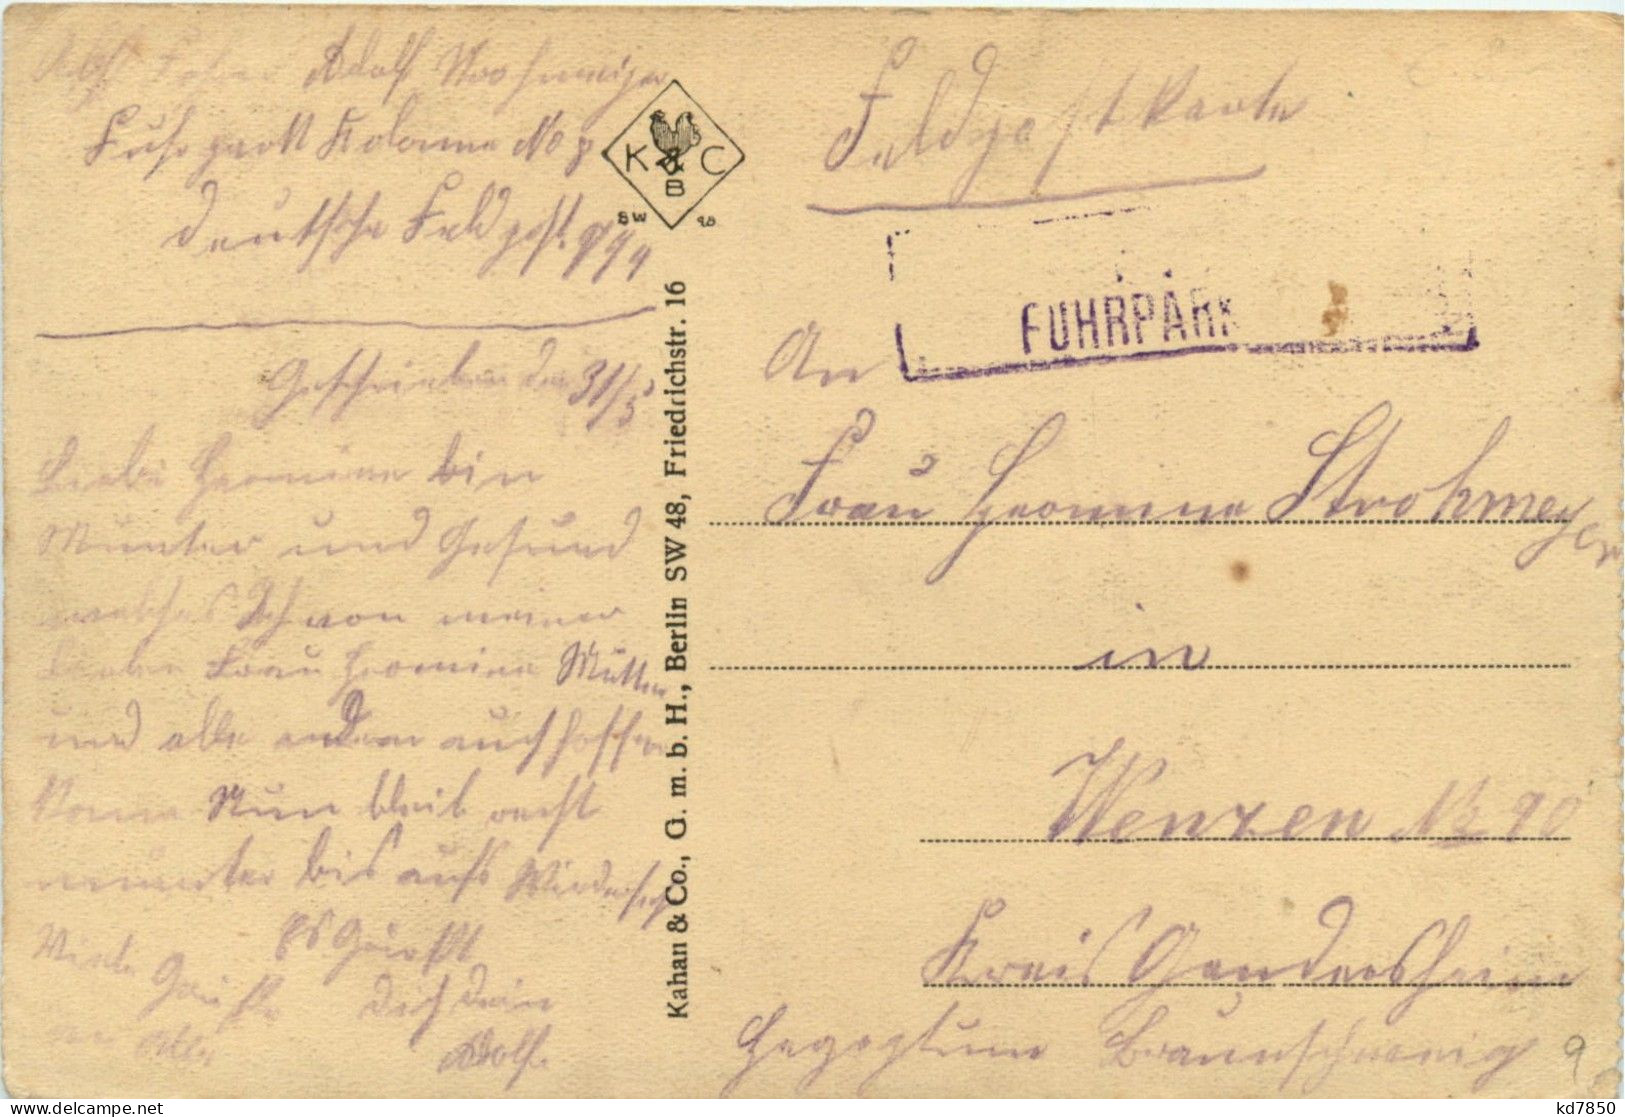 Adolf Strohmeyer
Fuhrpark Kolonne No
deutsche Feldpost
Geschrieben den 31/5
Liebe Hermine bin
Munter und Gesund
welches Ich von meiner
lieben Frau Hermine Mutter
und alle andern auch hoffen
Nun bleib recht
munter bis aufs Wiedersehen
Es Grüßt
Viele Grüße Dich dein
an Alle Adolf.
K & C
B
SW 48
Kahan & Co., G. m. b. H., Berlin SW 48, Friedrichstr. 16
Feldpostkarte
FUHRPARK
An
Frau Hermine Strohmeyer
in
Wenzen No 90
Kreis Gandersheim
Herzogtum Braunschweig
9
kd7850